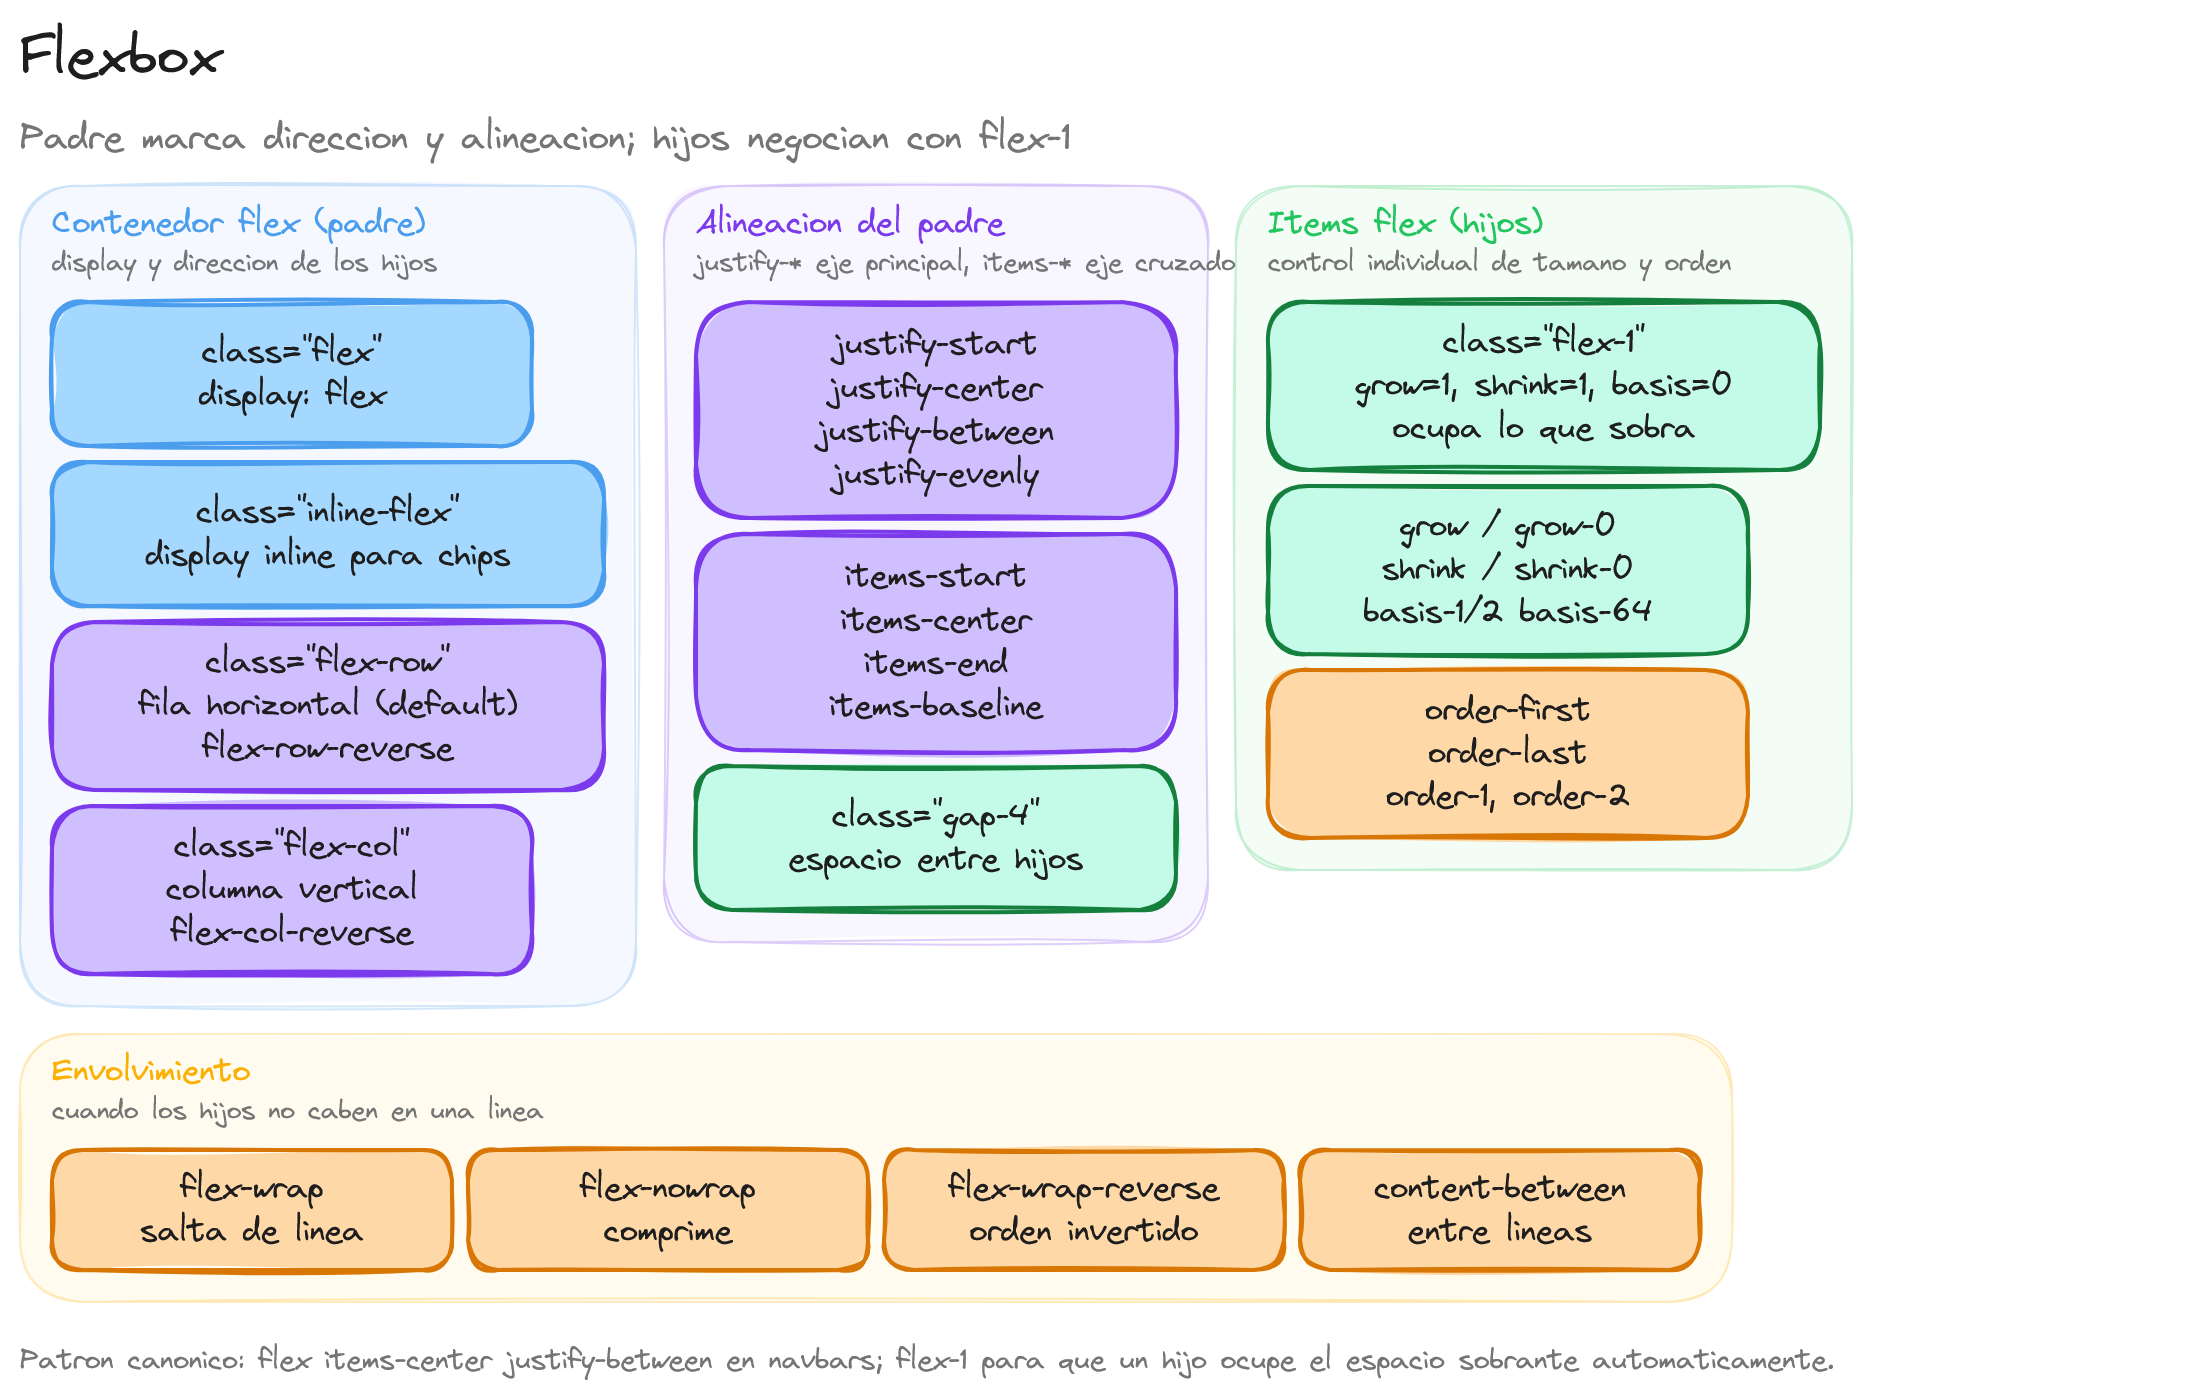 Flexbox
Padre marca direccion y alineacion; hijos negocian con flex-1
Contenedor flex (padre)
display y direccion de los hijos
class="flex"
display: flex
class="inline-flex"
display inline para chips
class="flex-row"
fila horizontal (default)
flex-row-reverse
class="flex-col"
columna vertical
flex-col-reverse
Alineacion del padre
justify-* eje principal, items-* eje cruzado
justify-start
justify-center
justify-between
justify-evenly
items-start
items-center
items-end
items-baseline
class="gap-4"
espacio entre hijos
Items flex (hijos)
control individual de tamano y orden
class="flex-1"
grow=1, shrink=1, basis=0
ocupa lo que sobra
grow / grow-0
shrink / shrink-0
basis-1/2 basis-64
order-first
order-last
order-1, order-2
Envolvimiento
cuando los hijos no caben en una linea
flex-wrap
salta de linea
flex-nowrap
comprime
flex-wrap-reverse
orden invertido
content-between
entre lineas
Patron canonico: flex items-center justify-between en navbars; flex-1 para que un hijo ocupe el espacio sobrante automaticamente.